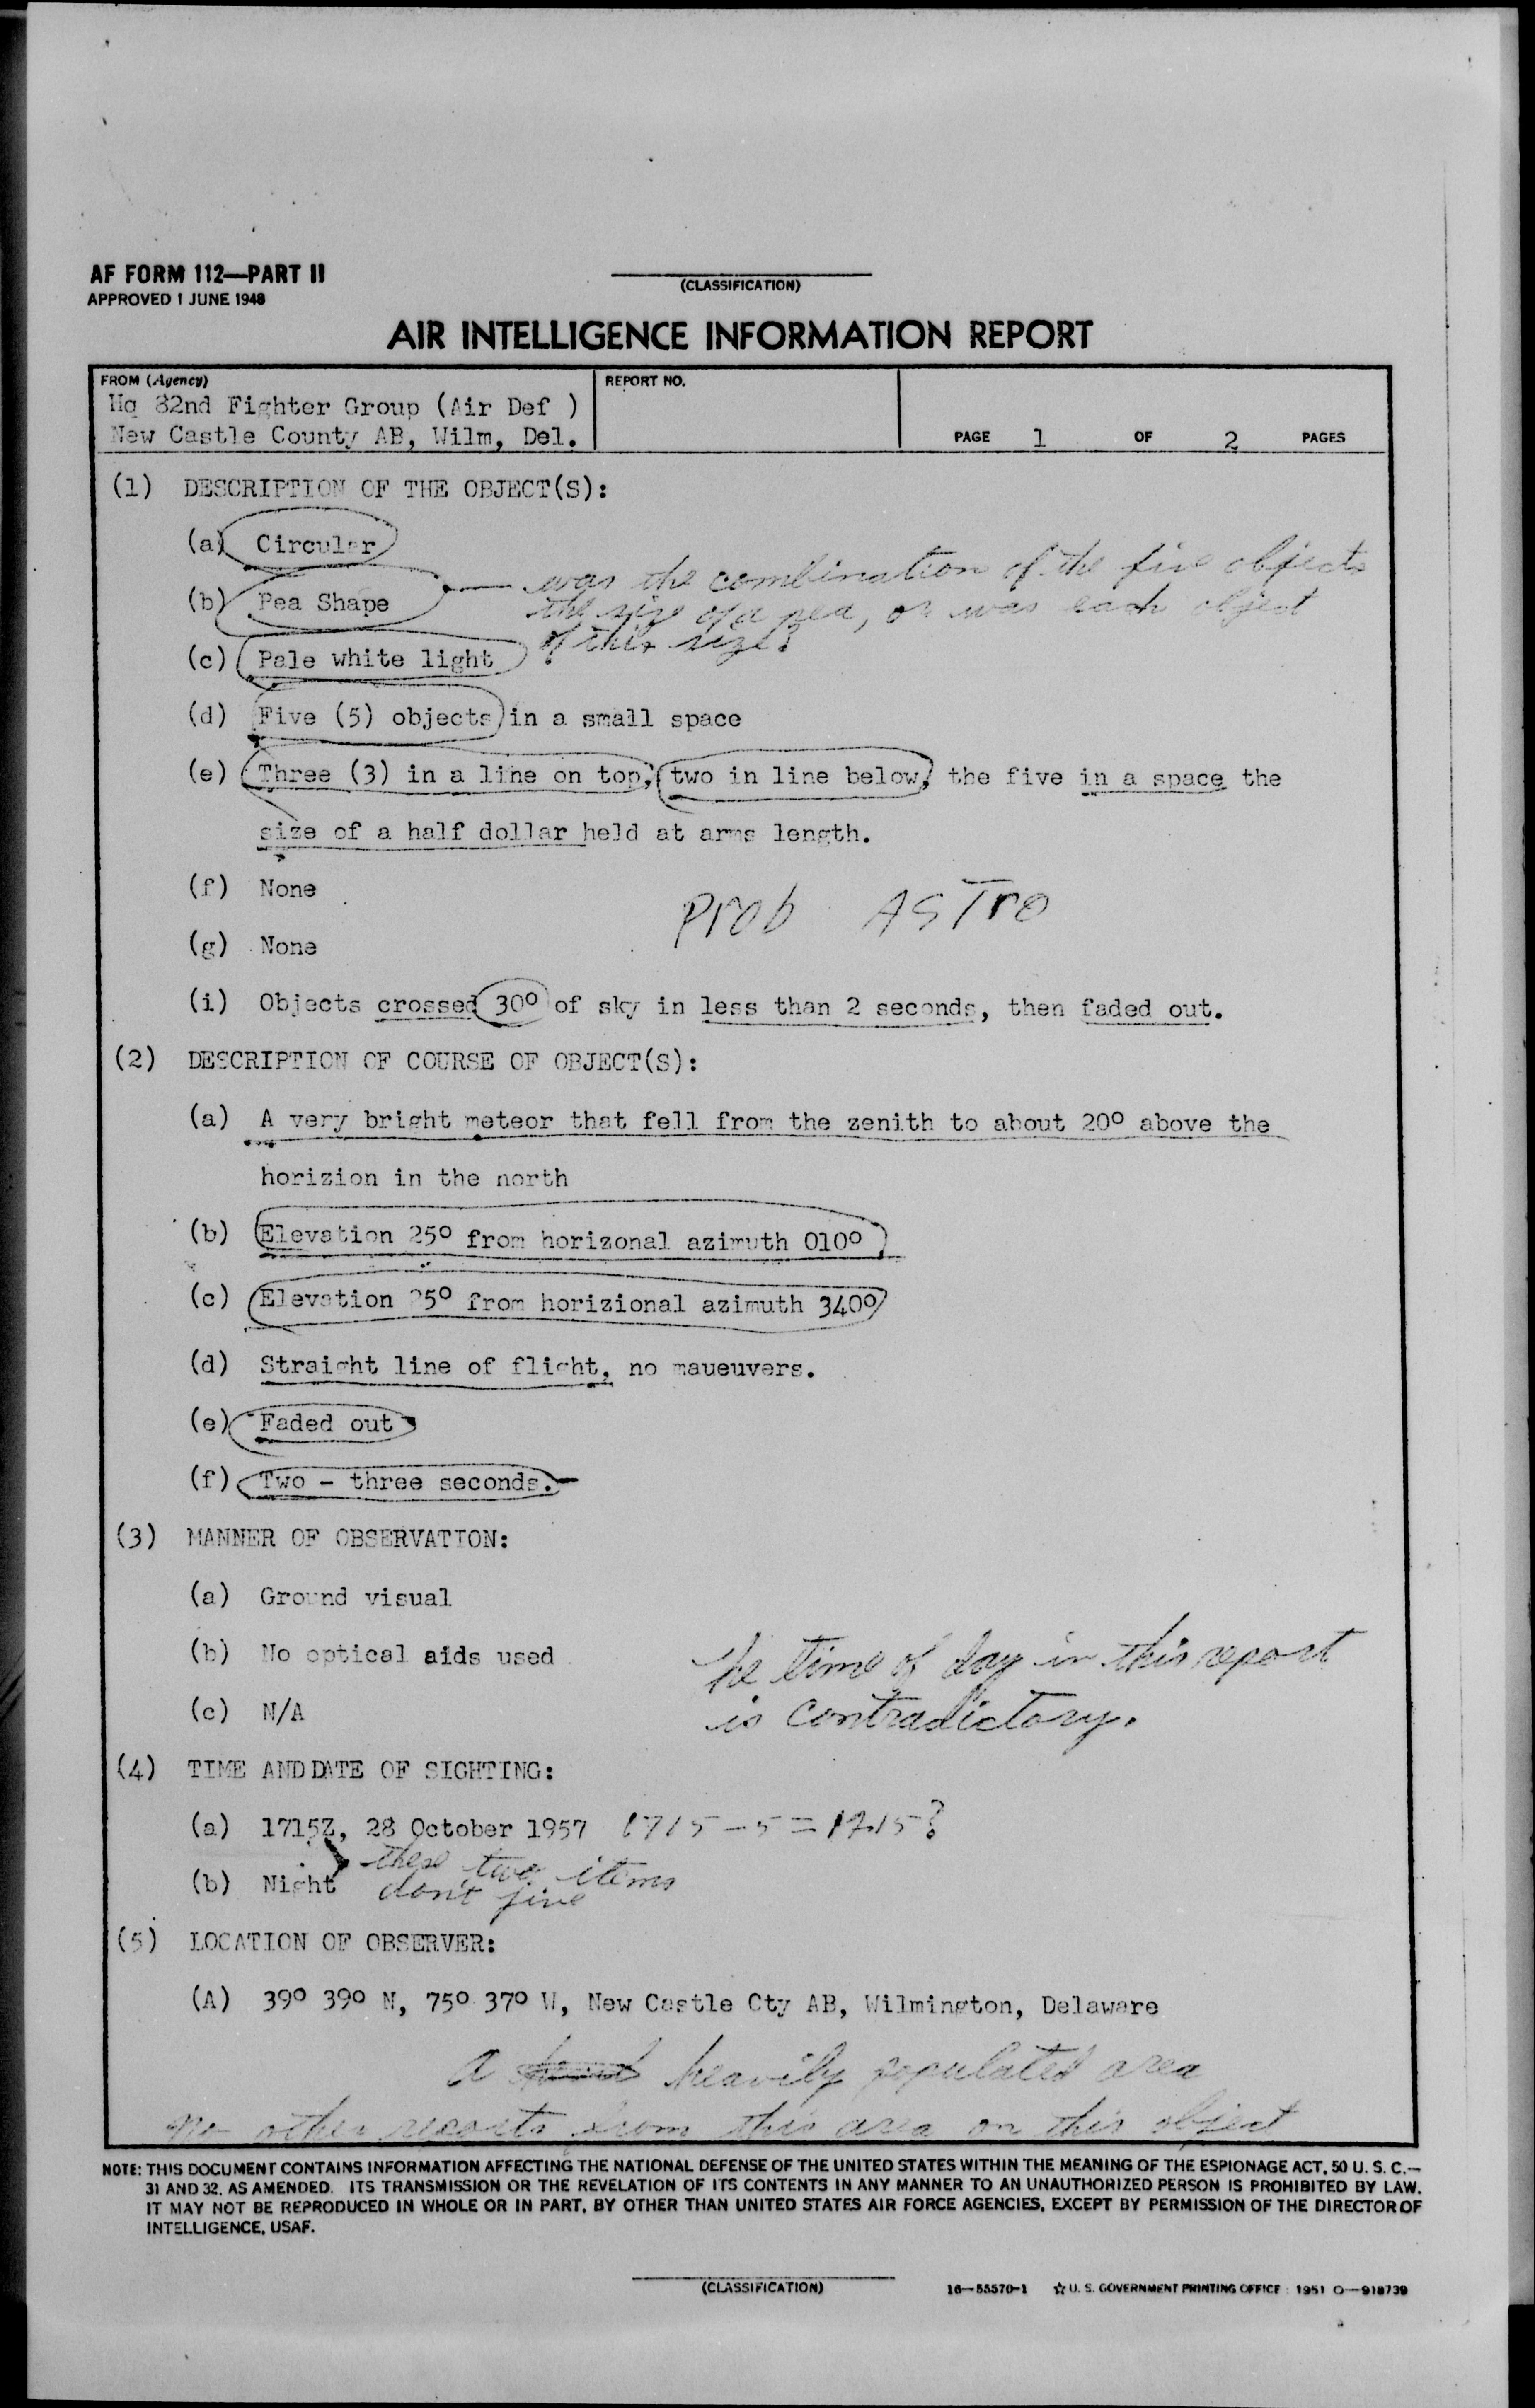 AF FORM 112—PART II
APPROVED 1 JUNE 1948
(CLASSIFICATION)
AIR INTELLIGENCE INFORMATION REPORT
FROM (Agency)
Hq 82nd Fighter Group (Air Def )
New Castle County AB, Wilm, Del.
REPORT NO.
PAGE 1 OF 2 PAGES
(1) DESCRIPTION OF THE OBJECT(S):
(a) Circular
(b) Pea Shape
was the combination of the five objects
the size of a pea, or was each object
of this size?
(c) Pale white light
(d) Five (5) objects in a small space
(e) Three (3) in a line on top, two in line below, the five in a space the
size of a half dollar held at arms length.
(f) None
Prob ASTro
(g) None
(i) Objects crossed 30° of sky in less than 2 seconds, then faded out.
(2) DESCRIPTION OF COURSE OF OBJECT(S):
(a) A very bright meteor that fell from the zenith to about 20° above the
horizion in the north
(b) Elevation 25° from horizonal azimuth 010°
(c) Elevation 25° from horizional azimuth 340°
(d) Straight line of flight, no maueuvers.
(e) Faded out
(f) Two - three seconds.
(3) MANNER OF OBSERVATION:
(a) Ground visual
(b) No optical aids used
The time of day in this report
(c) N/A
is contradictory.
(4) TIME AND DATE OF SIGHTING:
(a) 1715Z, 28 October 1957 1715 - 5 = 1215?
these two items
(b) Night don't jive
(5) LOCATION OF OBSERVER:
(A) 39° 39° N, 75° 37° W, New Castle Cty AB, Wilmington, Delaware
A heavily populated area
no other reports from this area on this object
NOTE: THIS DOCUMENT CONTAINS INFORMATION AFFECTING THE NATIONAL DEFENSE OF THE UNITED STATES WITHIN THE MEANING OF THE ESPIONAGE ACT, 50 U. S. C.—
31 AND 32, AS AMENDED. ITS TRANSMISSION OR THE REVELATION OF ITS CONTENTS IN ANY MANNER TO AN UNAUTHORIZED PERSON IS PROHIBITED BY LAW.
IT MAY NOT BE REPRODUCED IN WHOLE OR IN PART, BY OTHER THAN UNITED STATES AIR FORCE AGENCIES, EXCEPT BY PERMISSION OF THE DIRECTOR OF
INTELLIGENCE, USAF.
(CLASSIFICATION)
16—55570-1 ☆ U. S. GOVERNMENT PRINTING OFFICE : 1951 O—918739